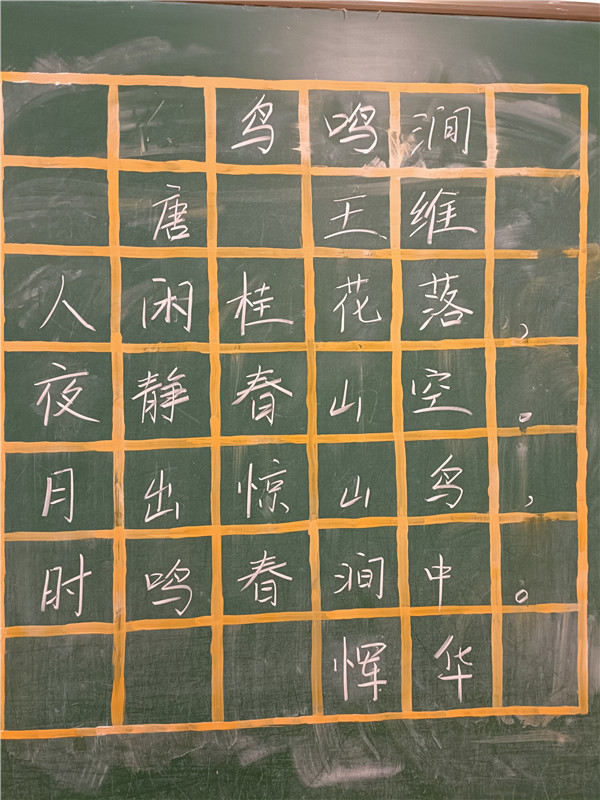 鸟鸣涧
唐 王维
人闲桂花落，
夜静春山空。
月出惊山鸟，
时鸣春涧中。
恽华